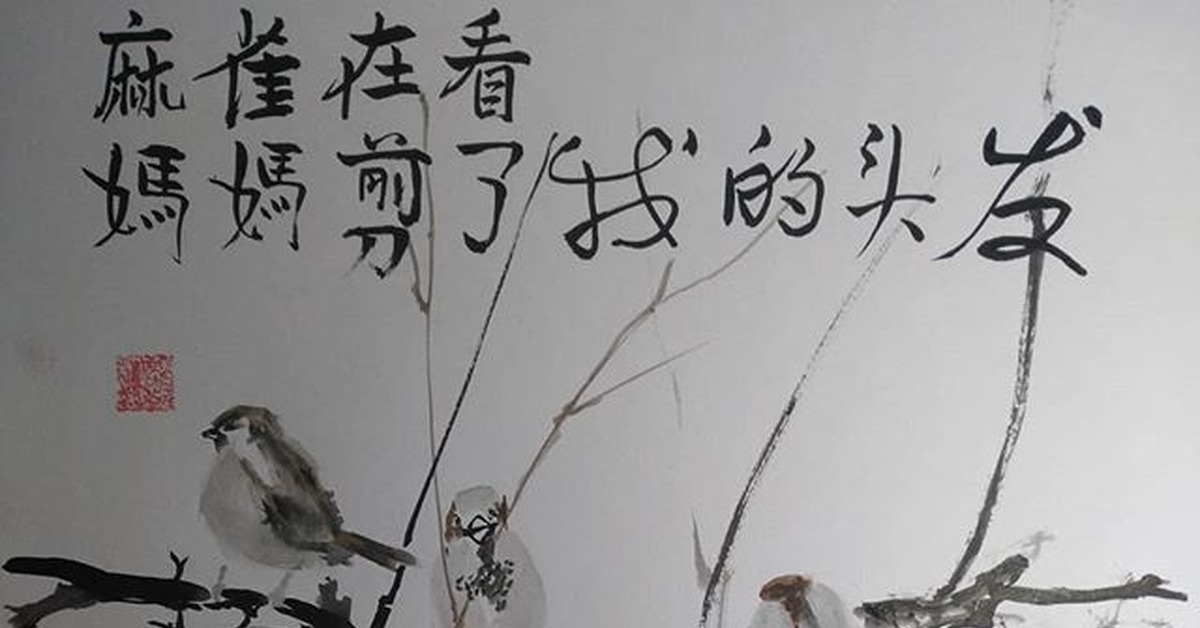 麻雀在看
媽媽剪了我的头发